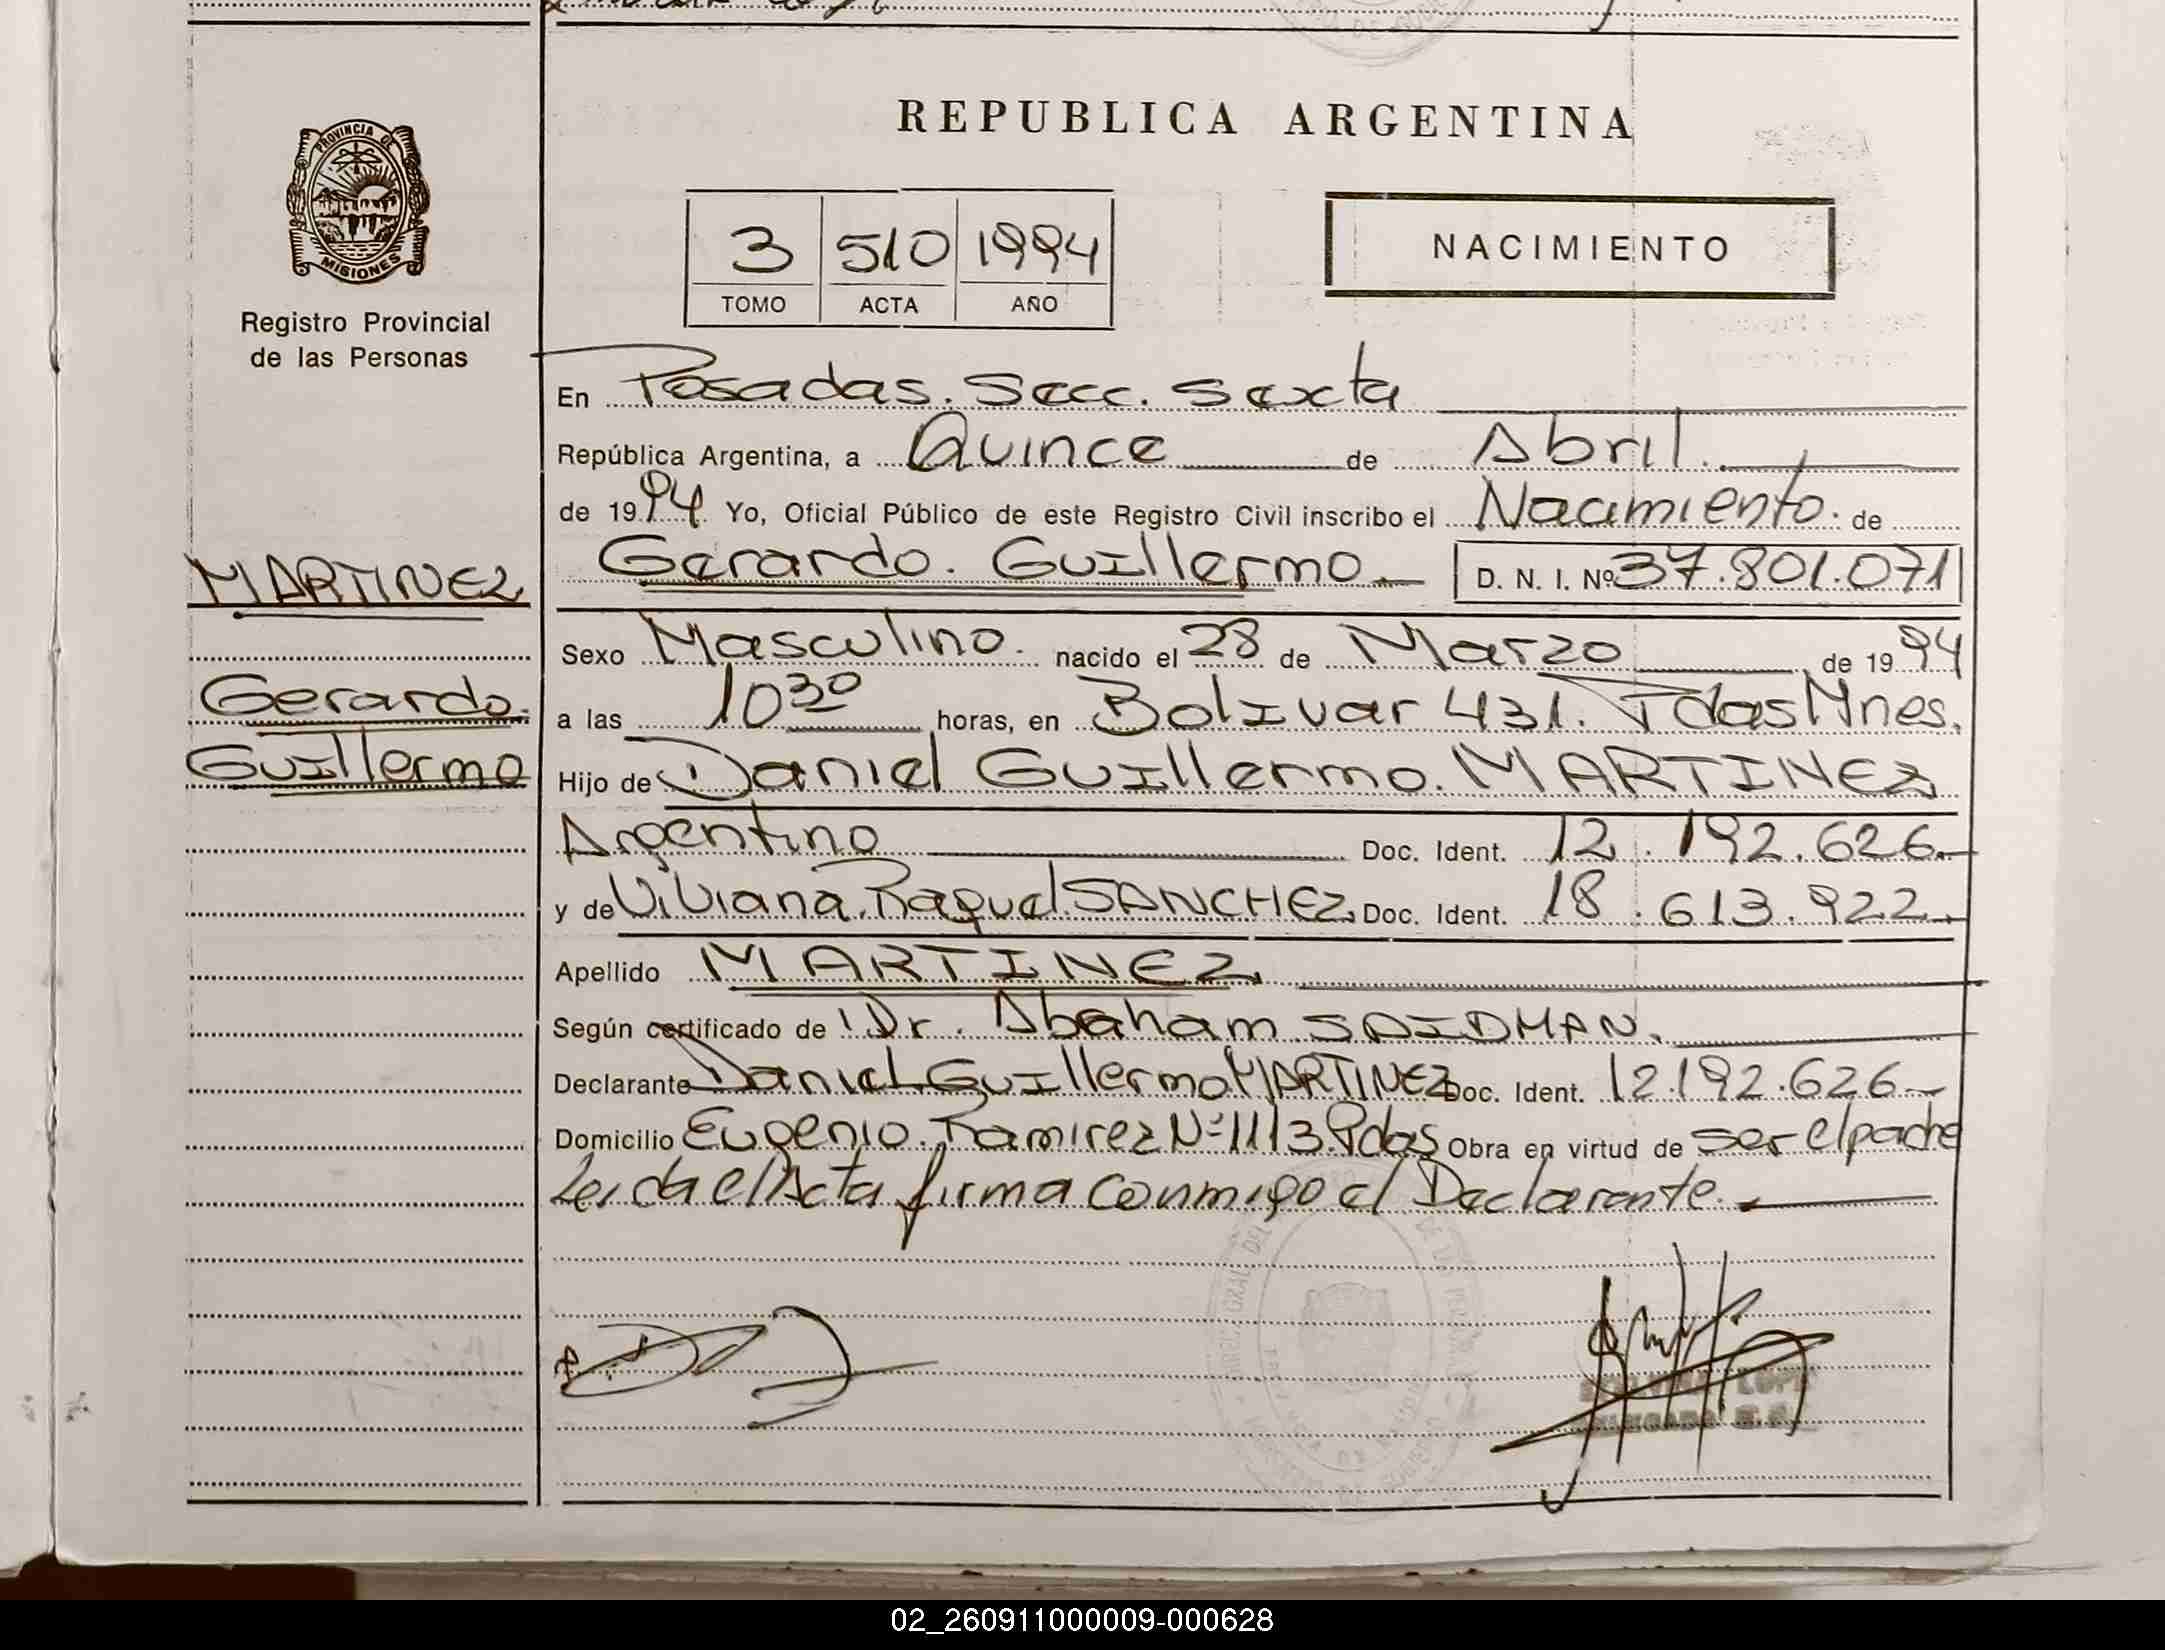 REPUBLICA ARGENTINA
PROVINCIA DE
MISIONES
Registro Provincial
de las Personas
3 510 1994
TOMO ACTA AÑO
NACIMIENTO
En Posadas. Secc. Sexta
República Argentina, a Quince de Abril.
de 1994. Yo, Oficial Público de este Registro Civil inscribo el Nacimiento. de
MARTINEZ
Gerardo. Guillermo D. N. I. Nº 37.801.071
Sexo Masculino. nacido el 28 de Marzo de 1994
Gerardo.
a las 10 30 horas, en Bolivar 431. Pdas Mnes.
Guillermo
Hijo de Daniel Guillermo. MARTINEZ
Argentino Doc. Ident. 12.192.626.-
y de Viviana. Raquel. SANCHEZ. Doc. Ident. 18.613.922.-
Apellido MARTINEZ.
Según certificado de Dr. Abraham SAIDMAN.
Declarante Daniel Guillermo MARTINEZ Doc. Ident. 12.192.626.-
Domicilio Eugenio. Ramirez Nº 1113. Pdas Obra en virtud de ser el padre
Leida el Acta firma conmigo el Declarante.
02_260911000009-000628